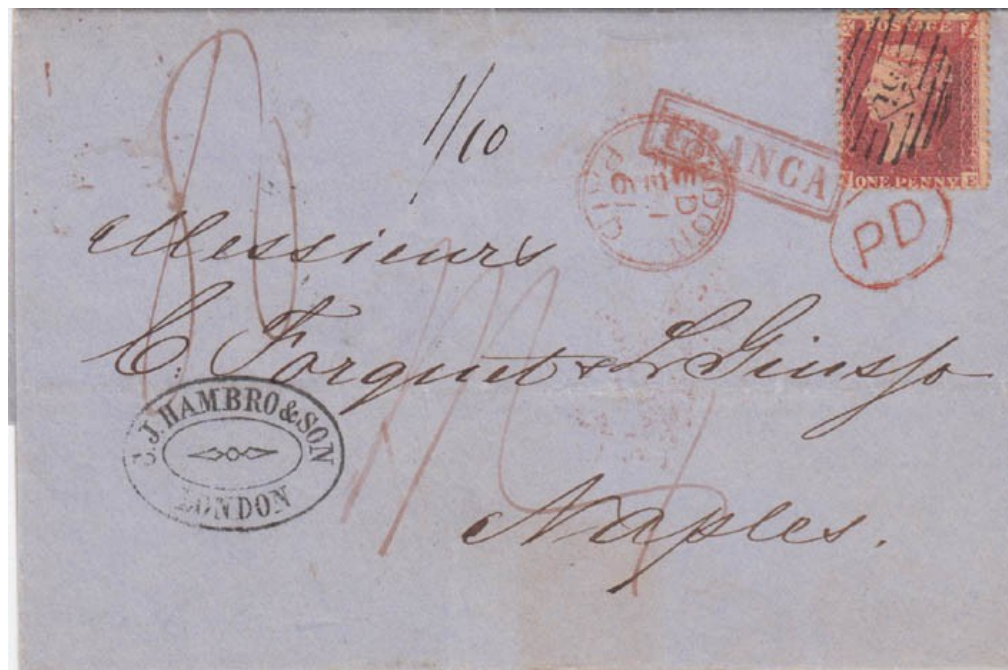 POSTAGE
ONE PENNY
1/10
FRANCA
LONDON
PAID
PD
Messieurs
C. Forquet & L Giusso
C. J. HAMBRO & SON
LONDON
Naples.